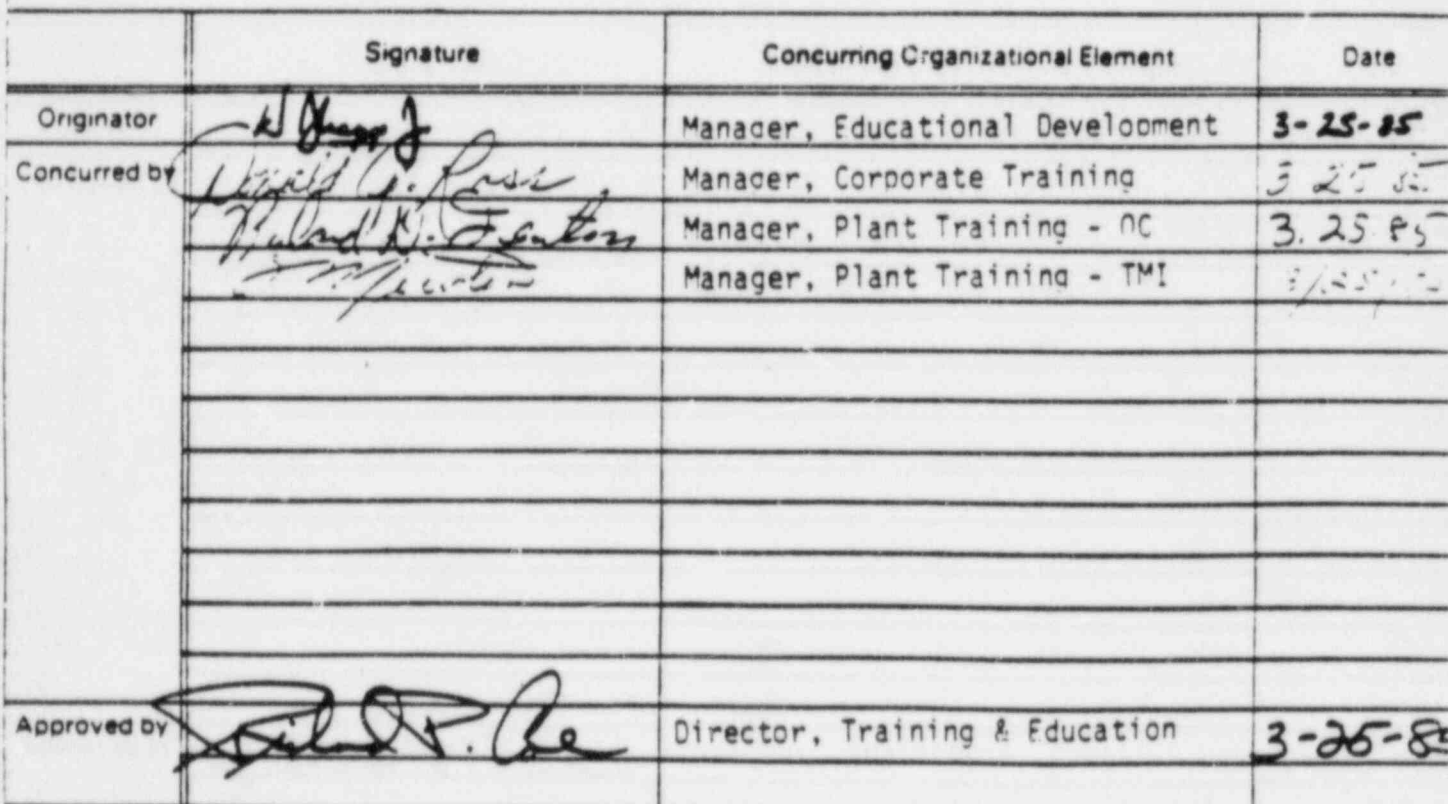 Signature Concurring Organizational Element Date
Originator Manager, Educational Development 3-25-85
Concurred by G. Ross Manager, Corporate Training 3 25 85
D. Fenton Manager, Plant Training - OC 3. 25 85
Manager, Plant Training - TMI
Approved by Richard P. Coe Director, Training & Education 3-25-8